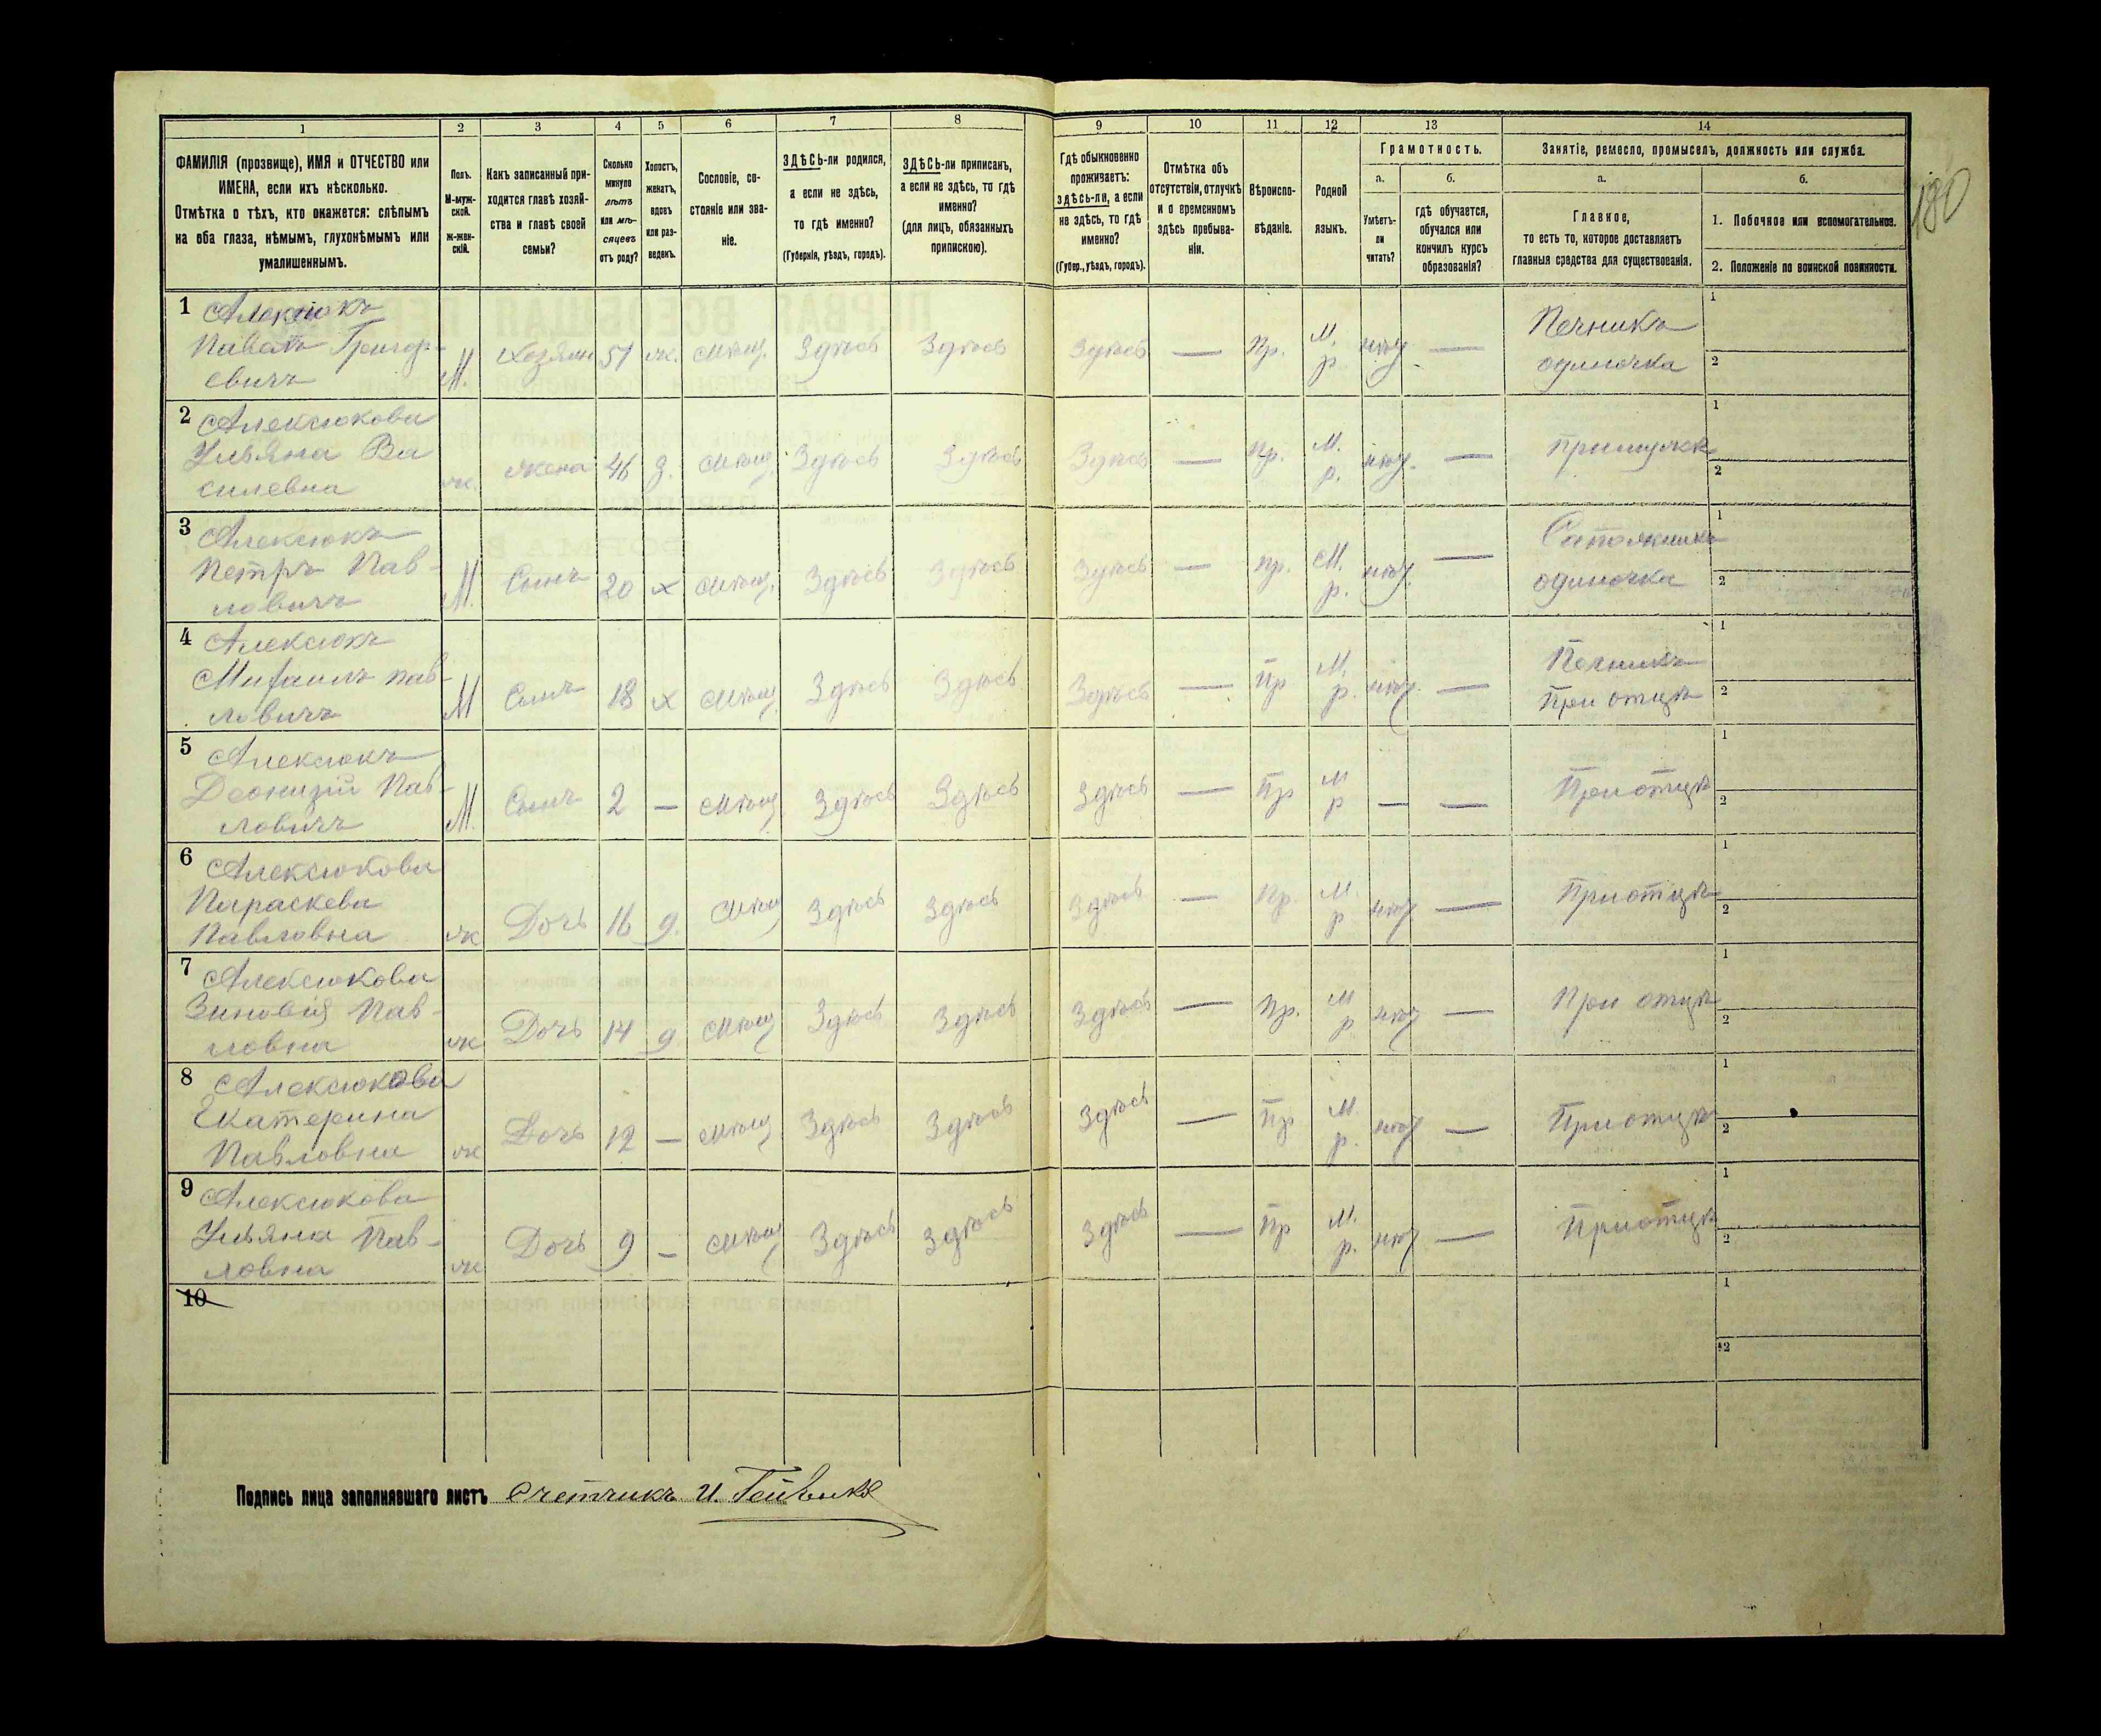 1 2 3 4 5 6 7 8 9 10 11 12 13 14
ФАМИЛІЯ (прозвище), ИМЯ и ОТЧЕСТВО или
ИМЕНА, если ихъ нѣсколько.
Отмѣтка о тѣхъ, кто окажется: слѣпымъ
на оба глаза, нѣмымъ, глухонѣмымъ или
умалишеннымъ.
Полъ.
М-муж-
ской.
Ж-жен-
скій.
Какъ записанный при-
ходится главѣ хозяй-
ства и главѣ своей
семьи?
Сколько
минуло
лѣтъ
или мѣ-
сяцевъ
отъ роду?
Холостъ,
женатъ,
вдовъ
или раз-
веденъ.
Сословіе, со-
стояніе или зва-
ніе.
ЗДѢСЬ-ли родился,
а если не здѣсь,
то гдѣ именно?
(Губернія, уѣздъ, городъ).
ЗДѢСЬ-ли приписанъ,
а если не здѣсь, то гдѣ
именно?
(для лицъ, обязанныхъ
припискою).
Гдѣ обыкновенно
проживаетъ:
здѣсь-ли, а если
не здѣсь, то гдѣ
именно?
(Губер., уѣздъ, городъ).
Отмѣтка объ
отсутствіи, отлучкѣ
и о временномъ
здѣсь пребыва-
ніи.
Вѣроиспо-
вѣданіе.
Родной
языкъ.
Грамотность.
а.
Умѣетъ-
ли
читать?
б.
гдѣ обучается,
обучался или
кончилъ курсъ
образованія?
Занятіе, ремесло, промыселъ, должность или служба.
а.
Главное,
то есть то, которое доставляетъ
главныя средства для существованія.
б.
1. Побочное или вспомогательное.
2. Положеніе по воинской повинности.
180
1 Алексюкъ
Павелъ Григор-
евичъ
М. Хозяин 51 ж. Мѣщ. Здѣсь Здѣсь Здѣсь — Пр. М. р. нѣт —
Печникъ
одиночка
1
2
2 Алексюкова
Ульяна Ва
силевна
ж. жена 46 з. Мѣщ. Здѣсь Здѣсь Здѣсь — Пр. М. р. нѣт. —
При мужѣ
1
2
3 Алексюкъ
Петръ Пав-
ловичъ
М. Сынъ 20 х Мѣщ. Здѣсь Здѣсь Здѣсь — пр. М. р. нѣт. —
Сапожникъ
одиночка
1
2
4 Алексюкъ
Михаилъ пав-
ловичъ
М Сынъ 18 х Мѣщ. Здѣсь Здѣсь Здѣсь — Пр М. р. нѣт. —
Печникъ
При отцѣ
1
2
5 Алексюкъ
Деонизій Пав-
ловичъ
М. Сынъ 2 — Мѣщ. Здѣсь Здѣсь Здѣсь — Пр М р — —
При отцѣ
1
2
6 Алексюкова
Параскева
Павловна
ж Дочь 16 д. Мѣщ Здѣсь Здѣсь Здѣсь — Пр. М. р нѣт —
При отцѣ
1
2
7 Алексюкова
Зиновія Пав-
ловна
ж Дочь 14 д Мѣщ Здѣсь Здѣсь Здѣсь — Пр. М р нѣт —
При отцѣ
1
2
8 Алексюкова
Екатерина
Павловна
ж Дочь 12 — Мѣщ Здѣсь Здѣсь Здѣсь — Пр М. р. нѣт —
При отцѣ
1
2
9 Алексюкова
Ульяна Пав-
ловна
ж Дочь 9 — Мѣщ Здѣсь Здѣсь Здѣсь — Пр М. р. нѣт —
При отцѣ
1
2
10
1
2
Подпись лица заполнявшаго листъ Счетчикъ И.